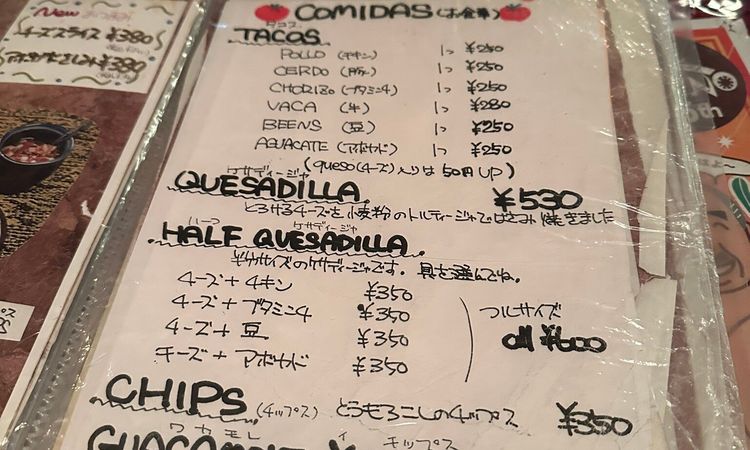 New
チーズスライス ¥380
¥380
COMIDAS (お食事)
タコス
TACOS
POLLO (チキン) 1つ ¥250
CERDO (豚) 1つ ¥250
CHORIZO (ブタミンチ) 1つ ¥250
VACA (牛) 1つ ¥280
BEENS (豆) 1つ ¥250
AGUACATE (アボカド) 1つ ¥250
(queso(チーズ)入りは 50円 UP)
ケサディージャ
QUESADILLA ¥530
とろけるチーズを小麦粉のトルティージャではさみ焼きました
ハーフ ケサディージャ
HALF QUESADILLA
半分サイズのケサディージャです。具を選んでね。
チーズ+チキン ¥350
チーズ+ブタミンチ ¥350
チーズ+豆 ¥350
チーズ+アボカド ¥350
フルサイズ
all ¥600
CHIPS (チップス) とうもろこしのチップス ¥350
ワカモレ チップス